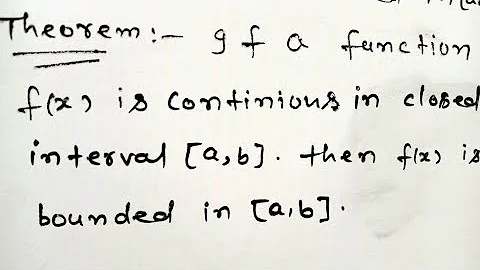 Theorem :- If a function
f(x) is continious in closed
interval [a,b]. then f(x) is
bounded in [a,b].